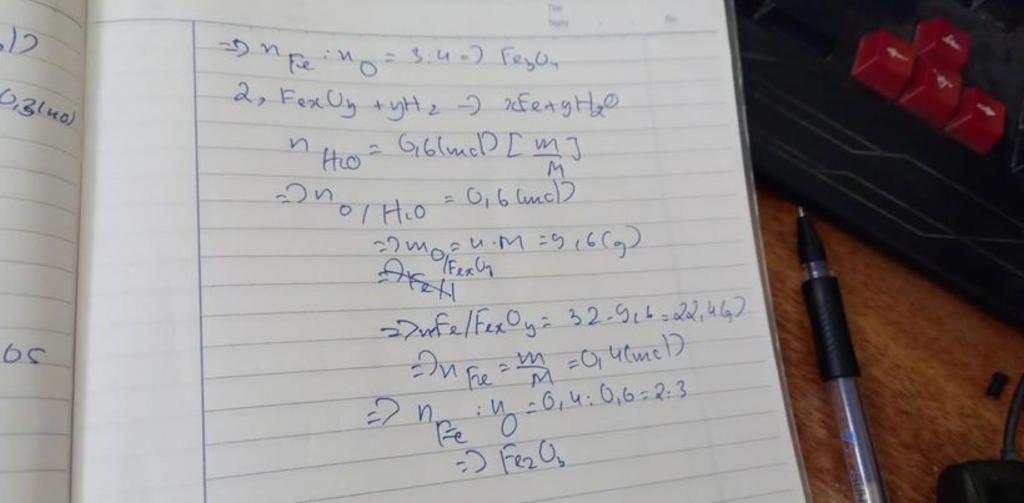 => n Fe : n O = 3:4 => Fe3O4
0,3(mol)
2, FexOy + yH2 -> xFe + yH2O
n H2O = 0,6(mol) [m/M]
=> n O/H2O = 0,6(mol)
=> m O/FexOy = n.M = 9,6(g)
=> mFe/FexOy = 32-9,6 = 22,4(g)
05
=> n Fe = m/M = 0,4(mol)
=> n Fe : n O = 0,4:0,6 = 2:3
=> Fe2O3